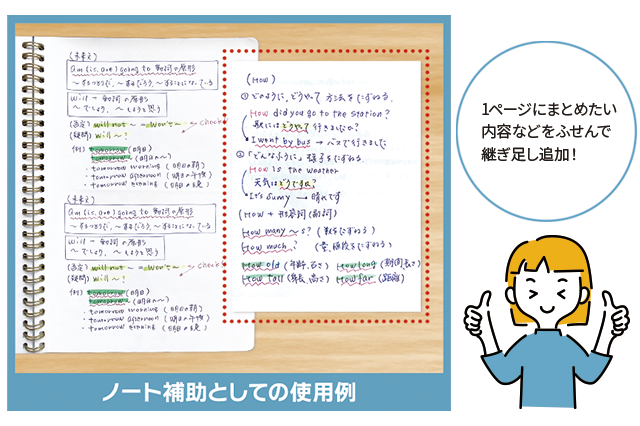 (未来文)
am (is, are) going to 動詞の原形
will + 動詞の原形
～でしょう、～しようと思う
(否定) will not ~ = won't ~
check
(疑問) Will ~ ?
(例) tomorrow (明日)
・tomorrow morning (明日の朝)
・tomorrow afternoon (明日の午後)
・tomorrow evening (明日の晩)
(未来文)
am (is, are) going to 動詞の原形
will + 動詞の原形
～でしょう、～しようと思う
(否定) will not ~ = won't ~
check
(疑問) Will ~ ?
(例) tomorrow (明日)
・tomorrow morning (明日の朝)
・tomorrow afternoon (明日の午後)
・tomorrow evening (明日の晩)
(How)
① どのように、どうやって 方法をたずねる。
How did you go to the station?
駅にはどうやって行きましたか?
・I went by bus → バスで行きました
②「どんなふうに」様子をたずねる
How is the weather
天気はどうですか?
・It's sunny → 晴れです
(How + 形容詞(副詞)
How many ~s? (数をたずねる)
How much ? (量、値段をたずねる)
How old (年齢、古さ) How long (期間、長さ)
How tall (身長、高さ) How far (距離)
1ページにまとめたい
内容などをふせんで
継ぎ足し追加!
ノート補助としての使用例